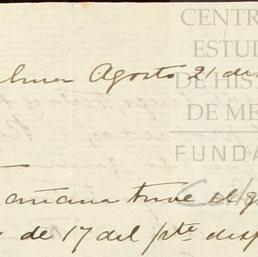 CENTR
ESTU
DE HIS
DE ME
FUNDA
Agosto 21 de
añana tuve el g
de 17 del pte desp